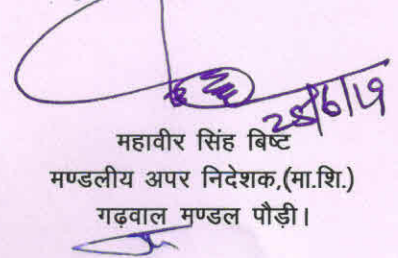 28/6/19
महावीर सिंह बिष्ट
मण्डलीय अपर निदेशक,(मा.शि.)
गढ़वाल मण्डल पौड़ी।